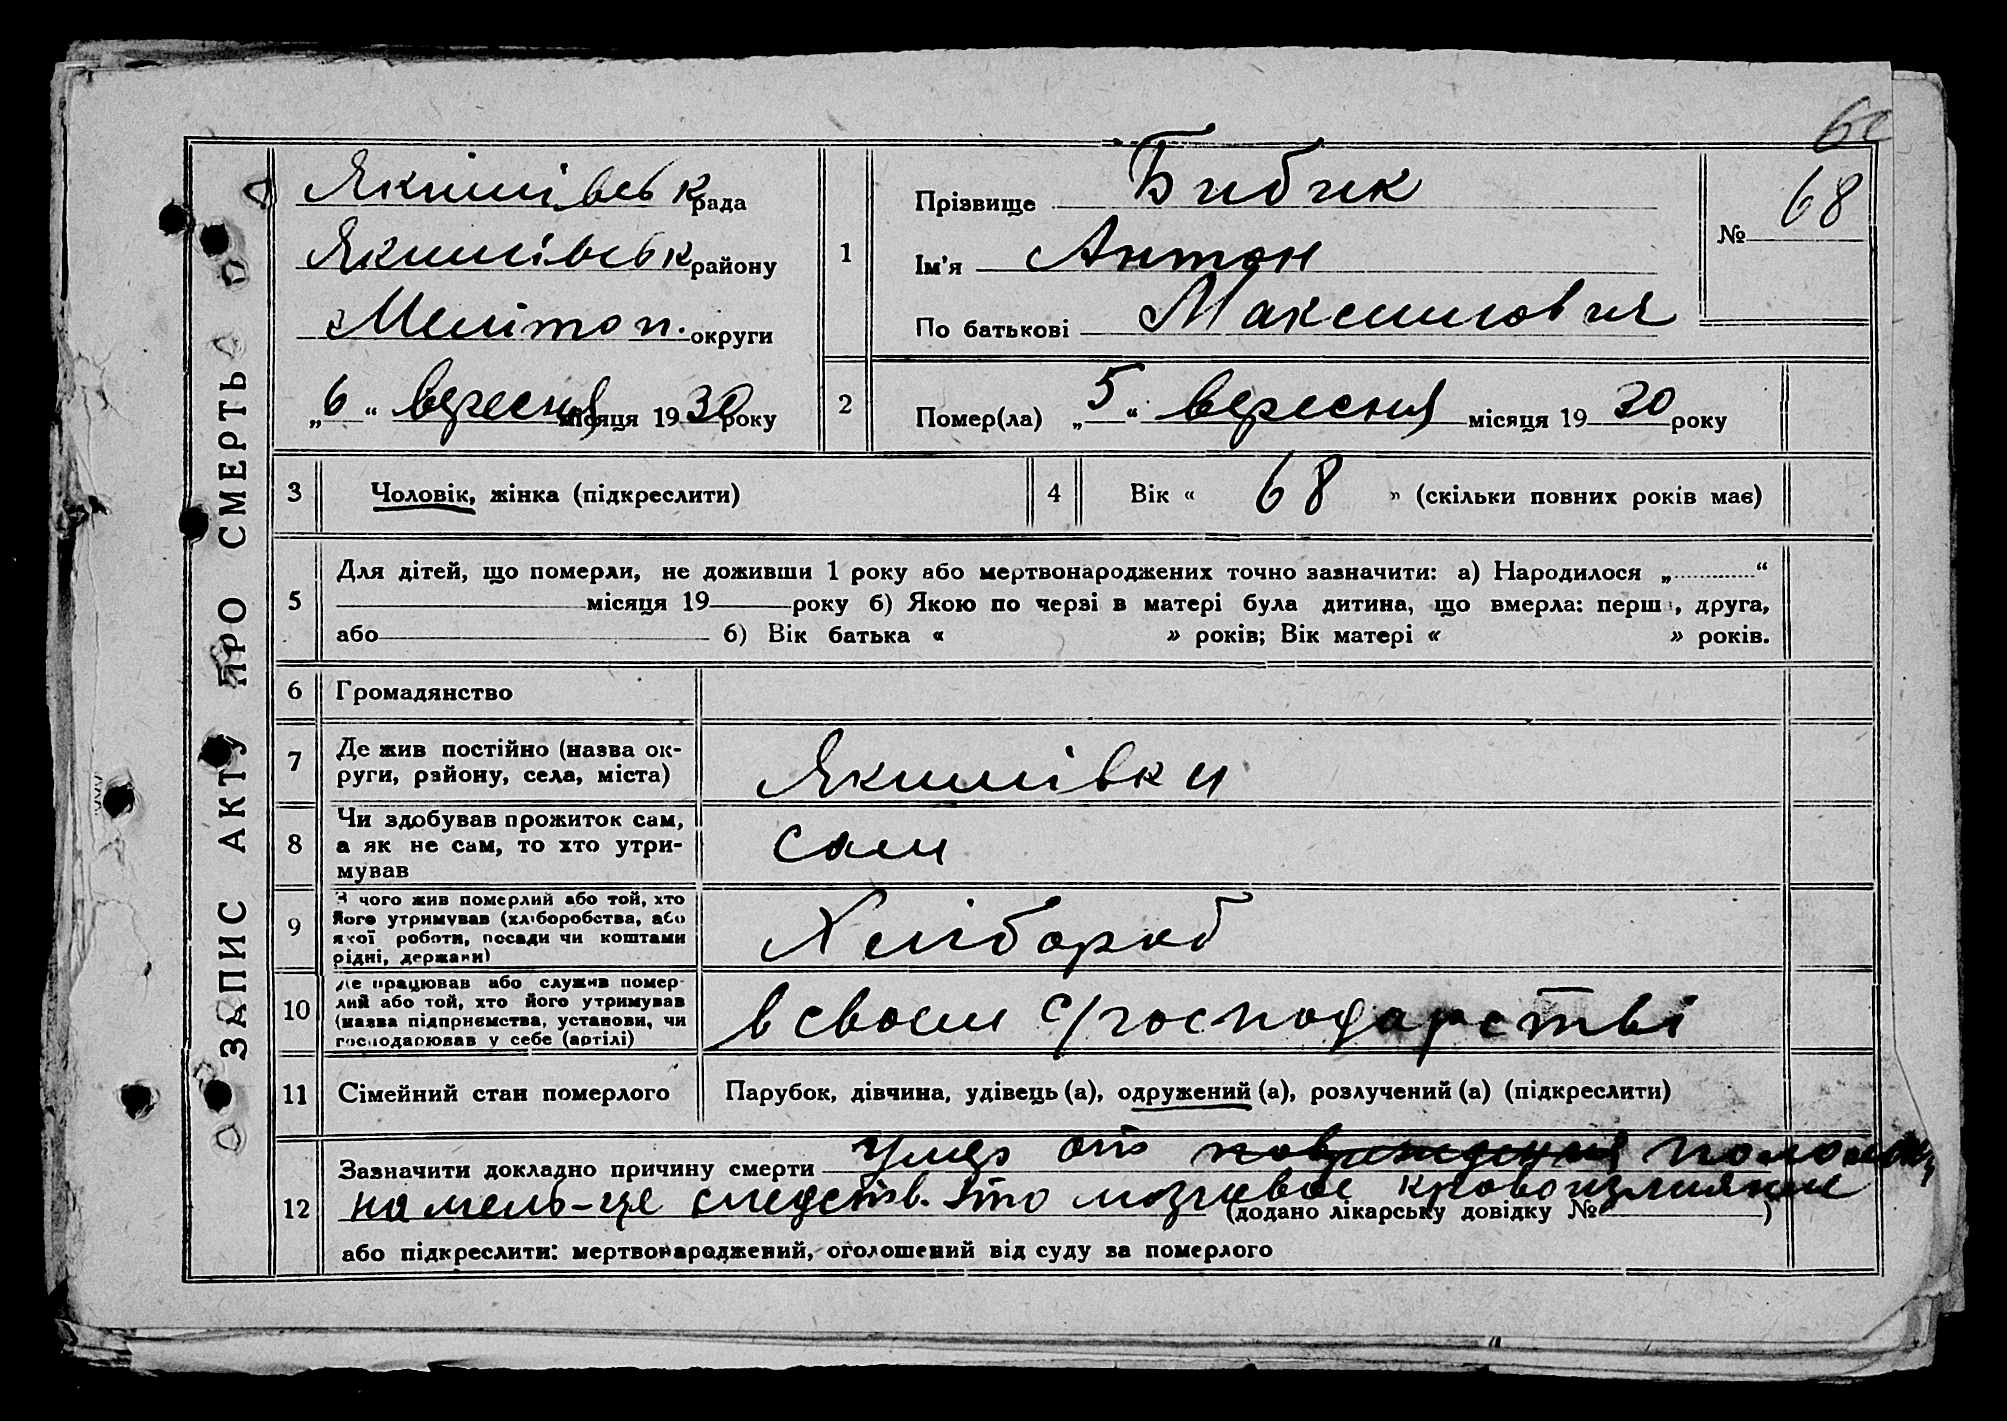 ЗАПИС АКТУ ПРО СМЕРТЬ
Якимівськ рада
Якимівськ району
Меліто п. округи
„6“ вересня місяця 1930 року
1
Прізвище Бибик
Ім'я Антон
По батькові Максимович
№ 68
2
Помер(ла) „5“ вересня місяця 1930 року
3
Чоловік, жінка (підкреслити)
4
Вік « 68 » (скільки повних років має)
5
Для дітей, що померли, не доживши 1 року або мертвонароджених точно зазначити: а) Народилося „ “
місяця 19 року б) Якою по черзі в матері була дитина, що вмерла: перш , друга,
або б) Вік батька « » років; Вік матері « » років.
6
Громадянство
7
Де жив постійно (назва ок-
руги, району, села, міста)
Якимівки
8
Чи здобував прожиток сам,
а як не сам, то хто утри-
мував
сам
9
З чого жив померлий або той, хто
його утримував (хліборобства, або
якої роботи, посади чи коштами
рідні, держави)
Хлібороб
10
Де працював або служив помер-
лий або той, хто його утримував
(назва підприємства, установи, чи
господарював у себе (артілі)
в своем с/господарстві
11
Сімейний стан померлого
Парубок, дівчина, удівець (а), одружений (а), розлучений (а) (підкреслити)
12
Зазначити докладно причину смерти
на мель-це следств. это мозгивое кровоизлияние
(додано лікарську довідку № )
або підкреслити: мертвонароджений, оголошений від суду за померлого